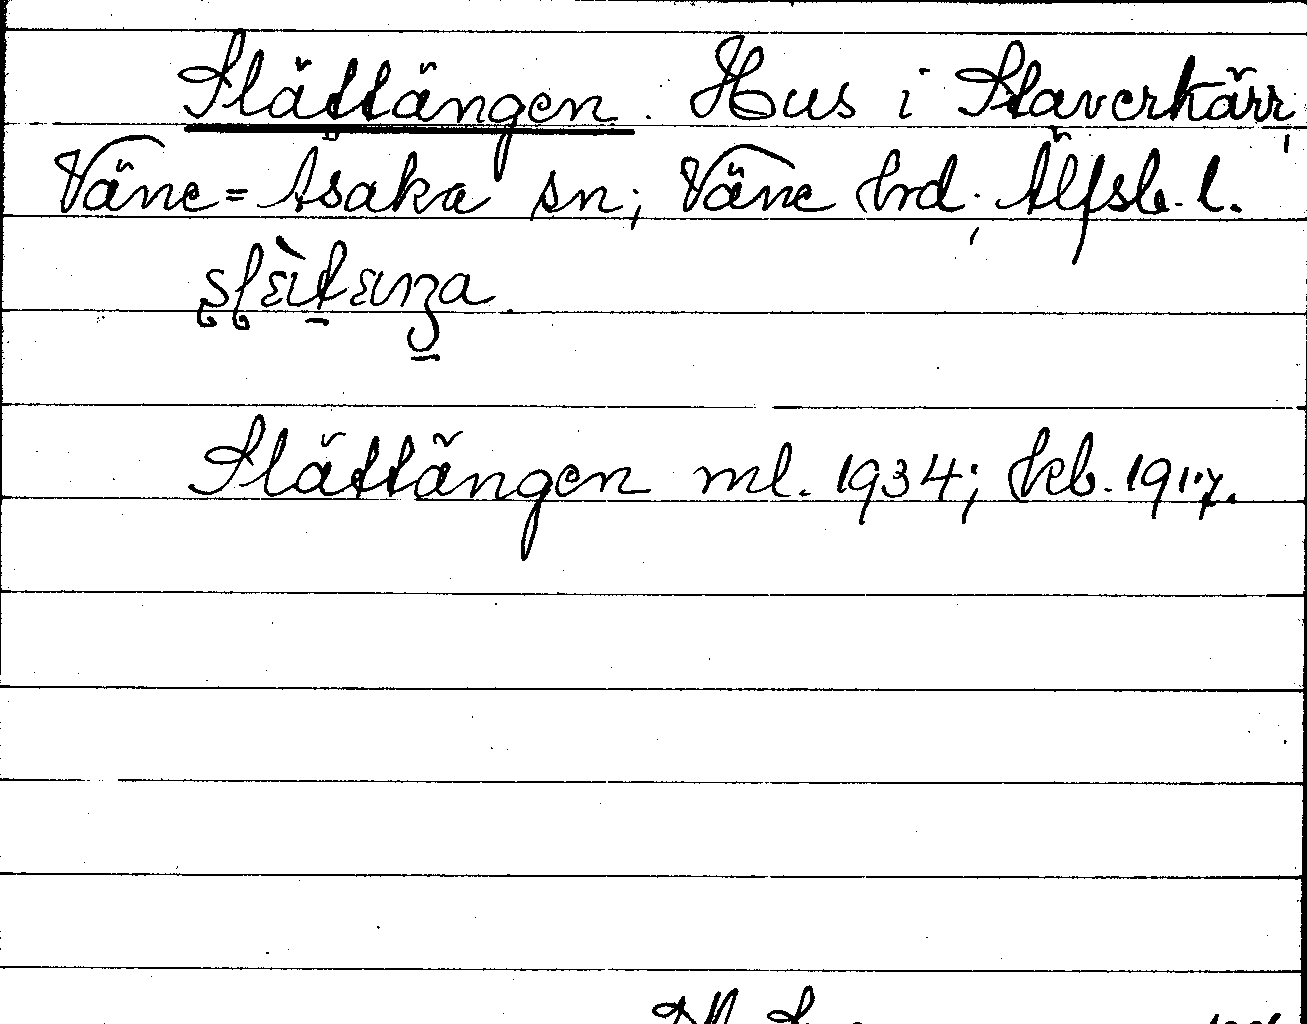 Slättängen. Hus i Slaverkärr,
Väne=Åsaka sn; Väne hrd; Älfsb. l.
Slättängen ml. 1934; kb. 1917.